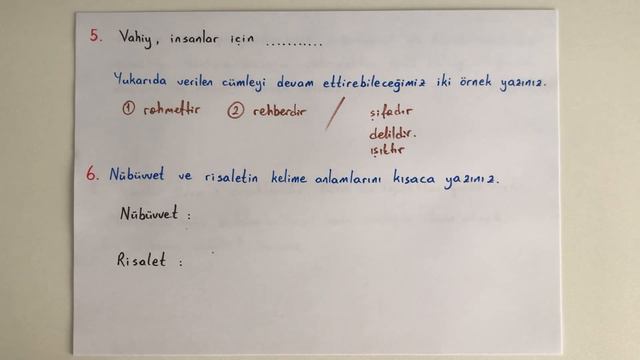 5. Vahiy, insanlar için ...........
Yukarıda verilen cümleyi devam ettirebileceğimiz iki örnek yazınız.
① rahmettir ② rehberdir / şifadır
delildir.
ışıktır
6. Nübüvvet ve risaletin kelime anlamlarını kısaca yazınız.
Nübüvvet :
Risalet :